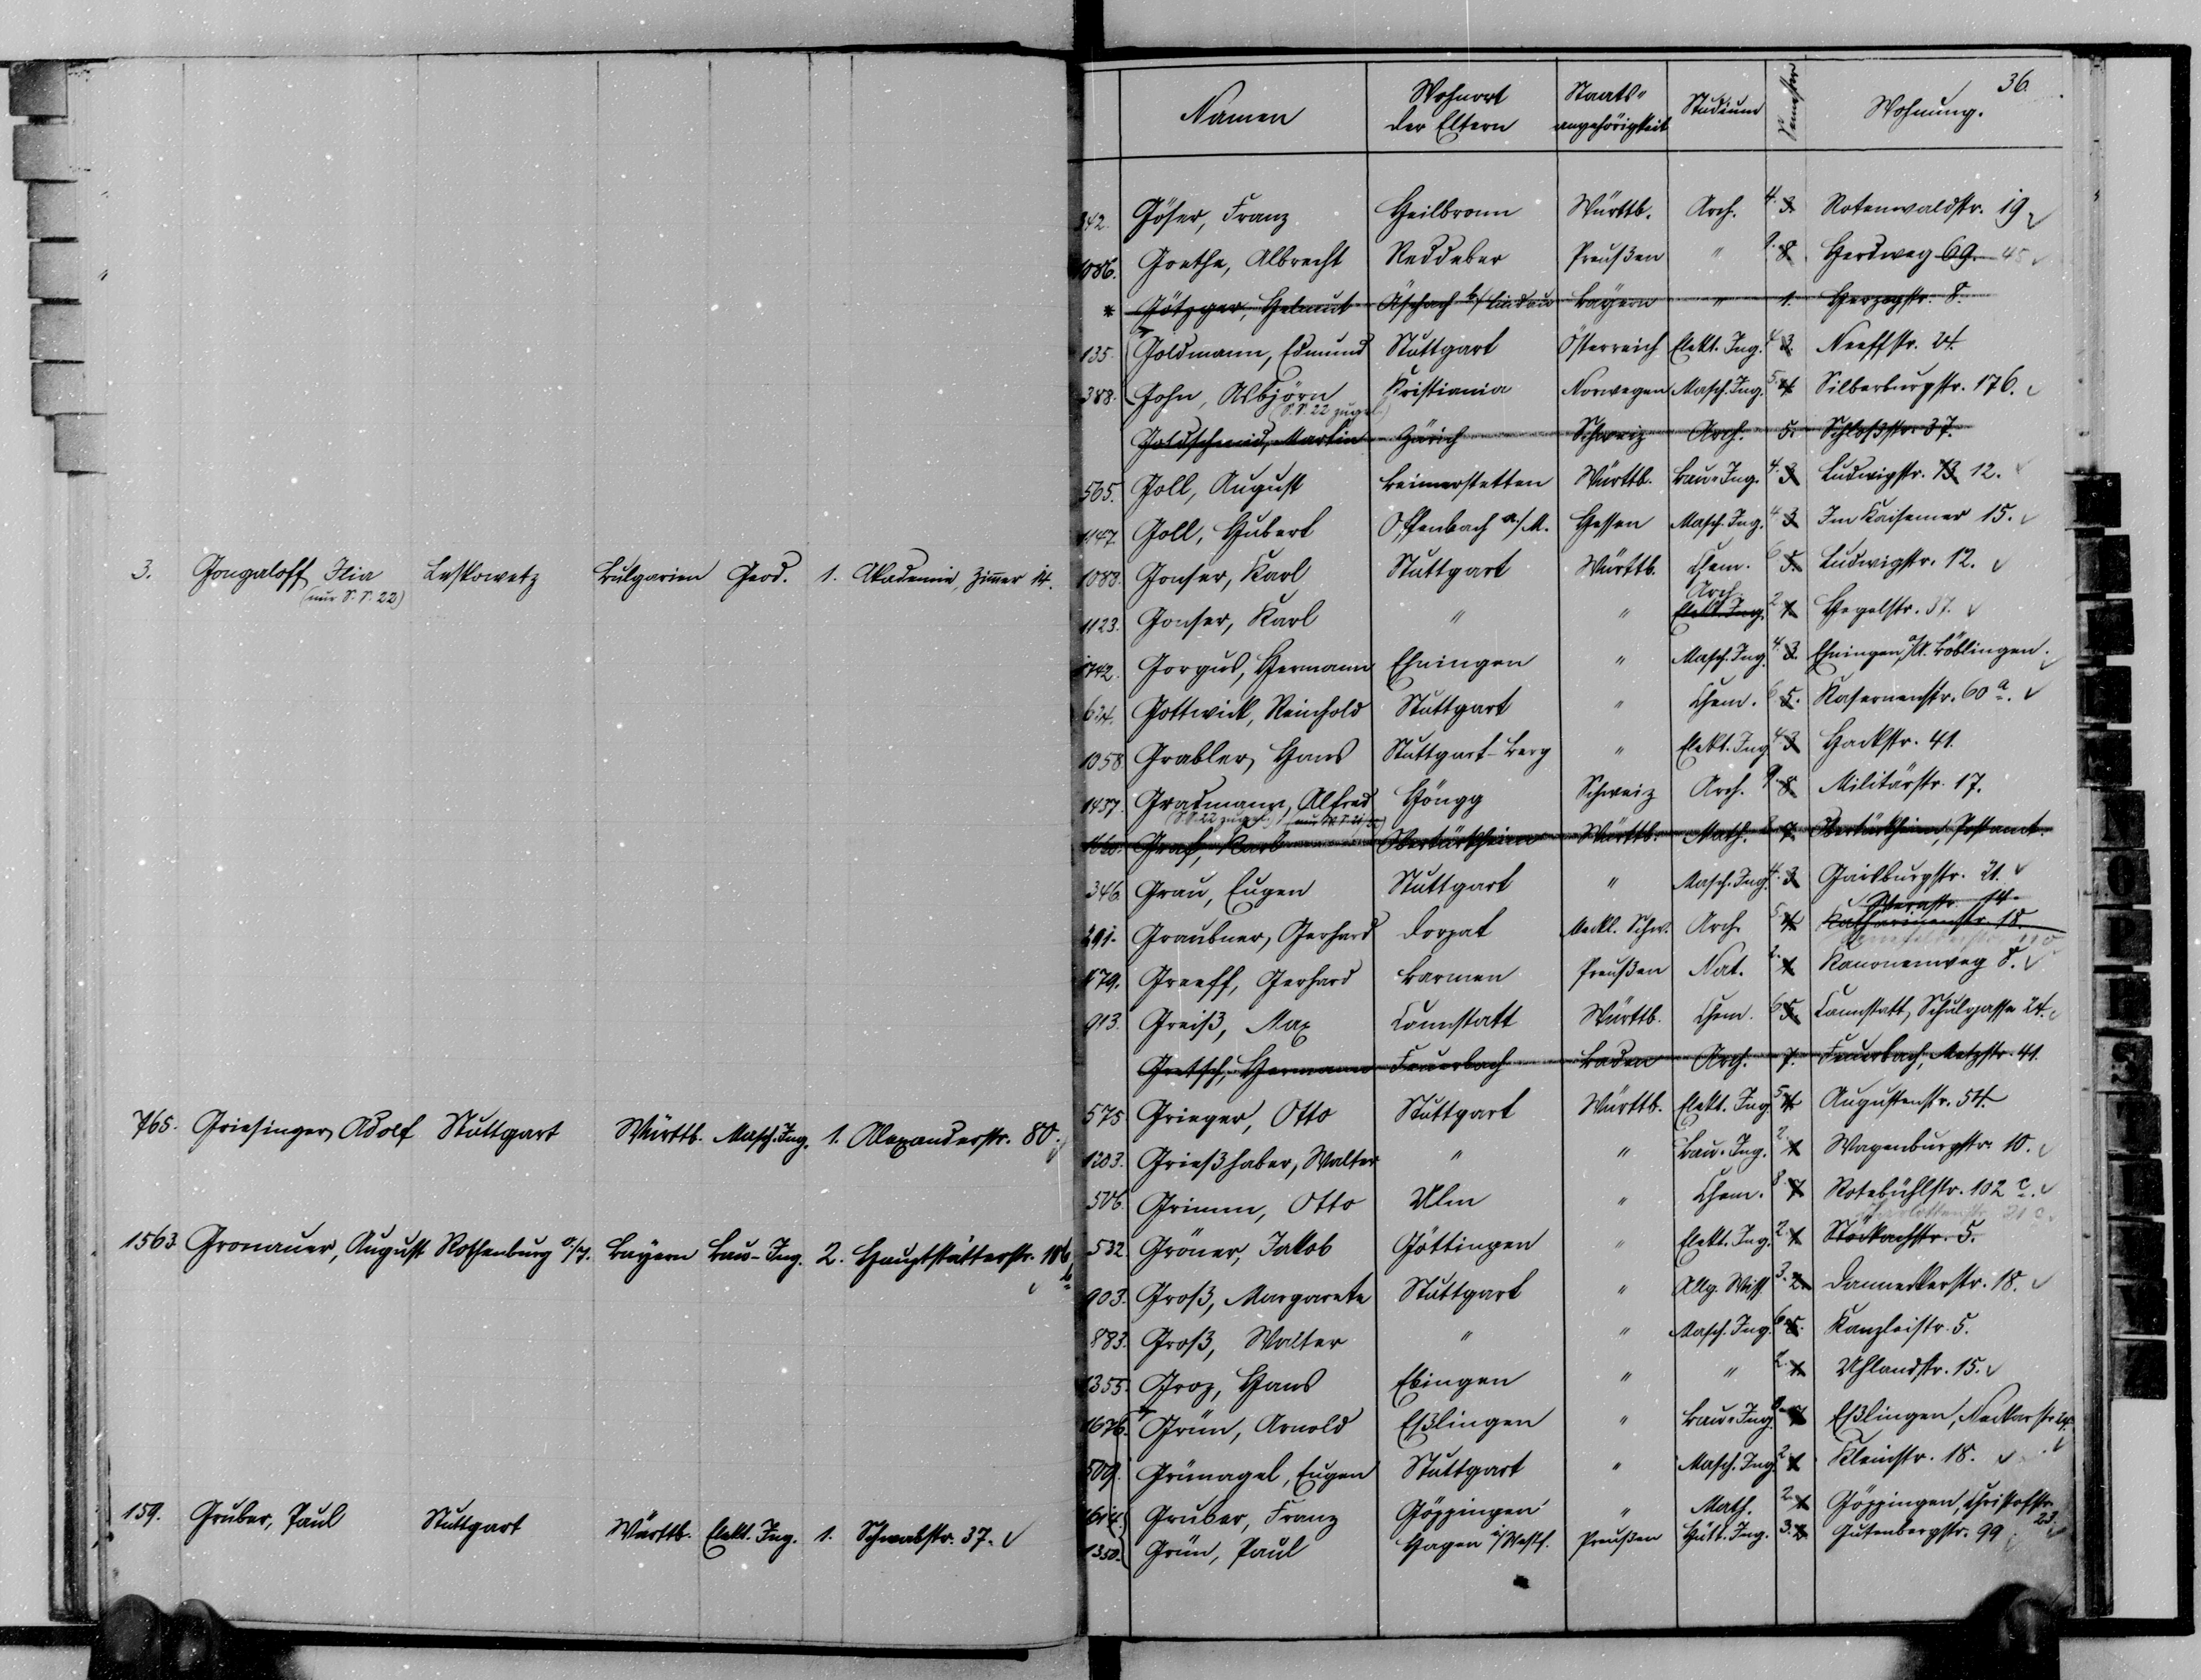 3. Gongaloff Ilia Leskowetz Bulgarien Geod. 1. Akademie, Zimmer 14.
(nur S.S. 22)
765. Griesinger, Adolf Stuttgart Württb. Masch. Ing. 1. Alexanderstr. 80.
1563 Gronauer, August Rothenburg o/T. Bayern Bau-Ing. 2. Hauptstätterstr. 136
b
159. Gruber, Paul Stuttgart Württb. Elekt. Ing. 1. Schwabstr. 37.
36.
Namen Wohnort der Eltern Staats-angehörigkeit Studium Semester Wohnung.
342. Göser, Franz Heilbronn Württb. Arch. 4. 3. Rotenwaldstr. 19
1086. Goethe, Albrecht Reddeber Preußen " 9. 8. Herdweg 69. 45
* Götzger, Helmut Äschach b/Lindau Bayern " 1. Herzogstr. 8.
135. Goldmann, Edmund Stuttgart Österreich Elekt. Ing. 4. 3. Neeffstr. 24.
388. John, Asbjörn Kristiania Norwegen Masch. Ing. 5. 4. Silberburgstr. 176.
(S.S. 22 zugel.)
Goldschmid, Martin Zürich Schweiz Arch. 5. Schloßstr. 37.
565. Goll, August Beimerstetten Württb. Bau-Ing. 4. 3. Ludwigstr. 13 12.
1147. Goll, Hubert Offenbach a/M. Hessen Masch. Ing. 4. 3. Im Kaisemer 15.
1088. Gonser, Karl Stuttgart Württb. Chem. 6. 5. Ludwigstr. 12.
Arch.
1123. Gonser, Karl " " Elekt. Ing. 2. 1. Hegelstr. 37.
1742. Gorgus, Hermann Ehningen " Masch. Ing. 4. 3. Ehningen, O/A. Böblingen.
624. Gottwick, Reinhold Stuttgart " Chem. 6. 5. Kasernenstr. 60 a.
1058 Grabler, Hans Stuttgart-Berg " Elekt. Ing. 4. 3. Hackstr. 41.
1437. Gradmann, Alfred Höngg Schweiz Arch. 9. 8. Militärstr. 17.
Graf, Karl Obertürkheim Württb. Math. 7. Obertürkheim, Postamt.
346. Grau, Eugen Stuttgart " Masch. Ing. 4. 3. Gaisburgstr. 21.
291. Graubner, Gerhard Dorpat Meckl. Schw. Arch. 5. 4. Katharinenstr. 18.
479. Greeff, Gerhard Barmen Preußen Nat. 2. 1. Kanonenweg 8.
913. Greiß, Max Cannstatt Württb. Chem. 6. 5. Cannstatt, Schulgasse 24.
Gretsch, Hermann Feuerbach Baden Arch. 7. Feuerbach, Metzstr. 41.
575 Grieger, Otto Stuttgart Württb. Elekt. Ing. 5. 4. Augustenstr. 54.
1203. Grießhaber, Walter " " Bau-Ing. 2. 1. Wagenburgstr. 10.
506. Grimm, Otto Ulm " Chem. 8. 7. Rotebühlstr. 102 c.
532. Gröner, Jakob Göttingen " Elekt. Ing. 2. 1. Stöckachstr. 5.
903. Groß, Margarete Stuttgart " Allg. Wiss. 3. 2. Danneckerstr. 18.
883. Groß, Walter " " Masch. Ing. 6. 5. Kanzleistr. 5.
1355. Groz, Hans Ebingen " " 2. 1. Uhlandstr. 15.
1676. Grün, Arnold Eßlingen " Bau-Ing. Eßlingen, Neckarstr. 24.
509. Grünagel, Eugen Stuttgart " Masch. Ing. 2. 1. Kleinstr. 18.
1614. Gruber, Franz Göppingen " Math. 2. 1. Göppingen, Christofstr. 23.
1350. Grün, Paul Hagen i/Westf. Preußen Hütt. Ing. 3. 2. Gutenbergstr. 99